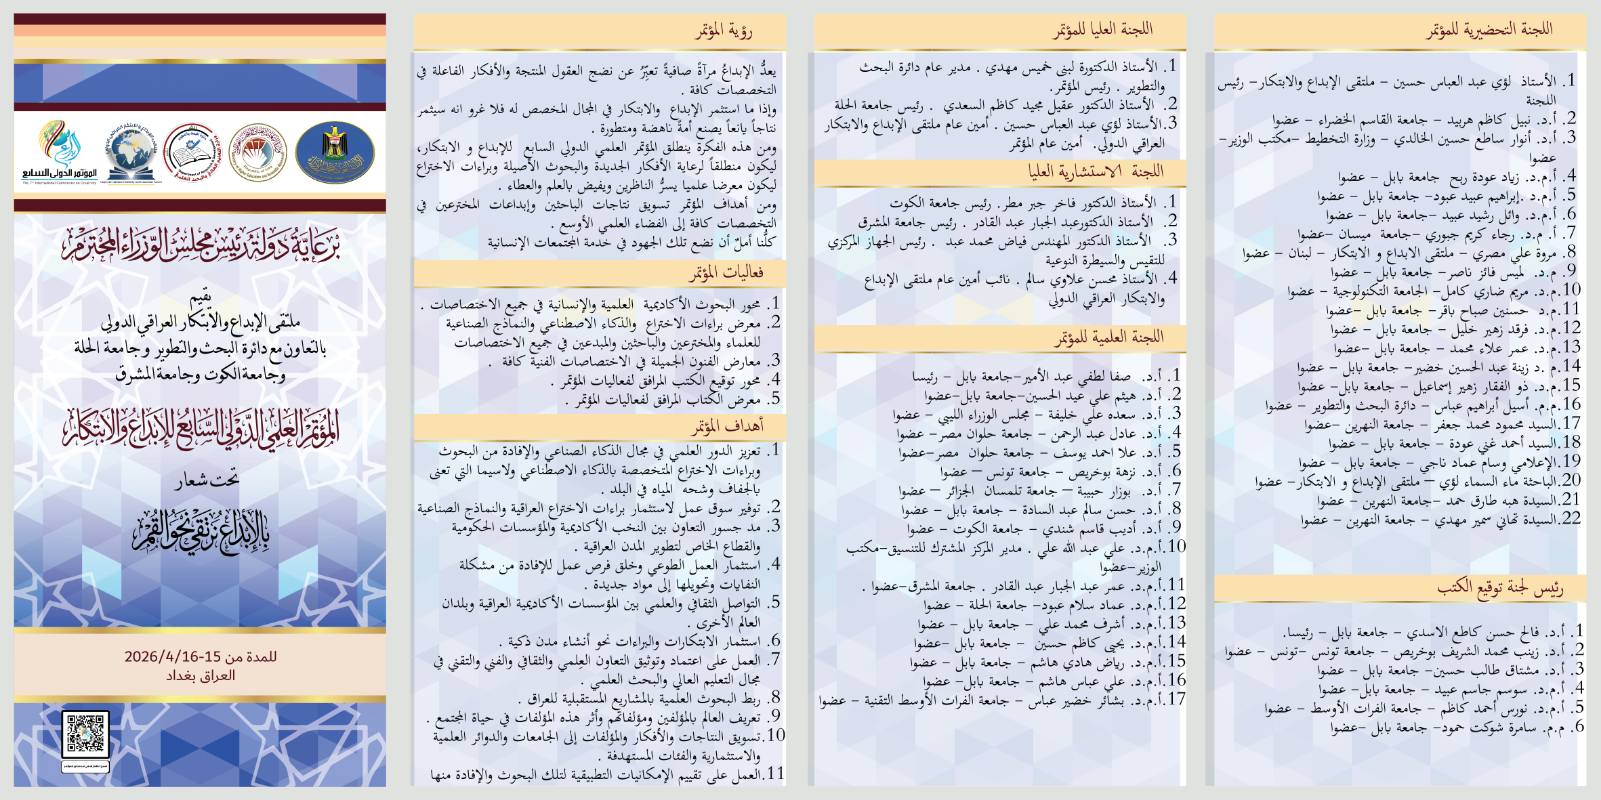 المؤتمر الدولي السابع
The 7th International Conference on Creativity
برعاية دولة رئيس مجلس الوزراء المحترم
يقيم
ملتقى الإبداع والابتكار العراقي الدولي
بالتعاون مع دائرة البحث والتطوير وجامعة الحلة
وجامعة الكوت وجامعة المشرق
المؤتمر العلمي الدولي السابع للإبداع والابتكار
تحت شعار
بالإبداع نرتقي نحو القمم
للمدة من 15-2026/4/16
العراق بغداد
رؤية المؤتمر
يعدُّ الإبداعُ مرآةً صافيةً تعبِّرُ عن نضج العقول المنتجة والأفكار الفاعلة في
التخصصات كافة .
وإذا ما استثمر الإبداع والابتكار في المجال المخصص له فلا غرو انه سيثمر
نتاجاً يانعاً يصنع أمةً ناهضة ومتطورة .
ومن هذه الفكرة ينطلق المؤتمر العلمي الدولي السابع للإبداع و الابتكار،
ليكون منطلقاً لرعاية الأفكار الجديدة والبحوث الأصيلة وبراءات الاختراع
ليكون معرضا علميا يسرُّ الناظرين ويفيض بالعلم والعطاء .
ومن أهداف المؤتمر تسويق نتاجات الباحثين وإبداعات المخترعين في
التخصصات كافة إلى الفضاء العلمي الأوسع .
كلُّنا أملٌ أن نضع تلك الجهود في خدمة المجتمعات الإنسانية
فعاليات المؤتمر
1. محور البحوث الأكاديمية العلمية والإنسانية في جميع الاختصاصات .
2. معرض براءات الاختراع والذكاء الاصطناعي والنماذج الصناعية
للعلماء والمخترعين والباحثين والمبدعين في جميع الاختصاصات
3. معارض الفنون الجميلة في الاختصاصات الفنية كافة .
4. محور توقيع الكتب المرافق لفعاليات المؤتمر .
5. معرض الكتاب المرافق لفعاليات المؤتمر .
أهداف المؤتمر
1. تعزيز الدور العلمي في مجال الذكاء الصناعي والإفادة من البحوث
وبراءات الاختراع المتخصصة بالذكاء الاصطناعي ولاسيما التي تعنى
بالجفاف وشحه المياه في البلد .
2. توفير سوق عمل لاستثمار براءات الاختراع العراقية والنماذج الصناعية
3. مد جسور التعاون بين النخب الأكاديمية والمؤسسات الحكومية
والقطاع الخاص لتطوير المدن العراقية .
4. استثمار العمل الطوعي وخلق فرص عمل للإفادة من مشكلة
النفايات وتحويلها إلى مواد جديدة .
5. التواصل الثقافي والعلمي بين المؤسسات الأكاديمية العراقية وبلدان
العالم الأخرى .
6. استثمار الابتكارات والبراءات نحو أنشاء مدن ذكية .
7. العمل على اعتماد وتوثيق التعاون العلمي والثقافي والفني والتقني في
مجال التعليم العالي والبحث العلمي .
8. ربط البحوث العلمية بالمشاريع المستقبلية للعراق .
9. تعريف العالم بالمؤلفين ومؤلفاتهم وأثر هذه المؤلفات في حياة المجتمع .
10.تسويق النتاجات والأفكار والمؤلفات إلى الجامعات والدوائر العلمية
والاستثمارية والفئات المستهدفة .
11.العمل على تقييم الإمكانيات التطبيقية لتلك البحوث والإفادة منها
اللجنة العليا للمؤتمر
1. الأستاذ الدكتورة لبنى خميس مهدي . مدير عام دائرة البحث
والتطوير . رئيس المؤتمر.
2. الأستاذ الدكتور عقيل مجيد كاظم السعدي . رئيس جامعة الحلة
3.الأستاذ لؤي عبد العباس حسين . أمين عام ملتقى الإبداع والابتكار
العراقي الدولي. أمين عام المؤتمر
اللجنة الاستشارية العليا
1. الأستاذ الدكتور فاخر جبر مطر. رئيس جامعة الكوت
2. الأستاذ الدكتورعبد الجبار عبد القادر . رئيس جامعة المشرق
3. الأستاذ الدكتور المهندس فياض محمد عبد . رئيس الجهاز المركزي
للتقيس والسيطرة النوعية
4. الأستاذ محسن علاوي سالم . نائب أمين عام ملتقى الإبداع
والابتكار العراقي الدولي
اللجنة العلمية للمؤتمر
1. أ.د. صفا لطفي عبد الأمير-جامعة بابل - رئيسا
2. أ.د. هيثم علي عبد الحسين-جامعة بابل-عضوا
3. أ.د. سعده علي خليفة - مجلس الوزراء الليبي - عضوا
4. أ.د. عادل عبد الرحمن - جامعة حلوان مصر- عضوا
5. أ.د. علا احمد يوسف - جامعة حلوان مصر-عضوا
6. أ.د. نزهة بوخريص - جامعة تونس – عضوا
7. أ.د. بوزار حبيبة – جامعة تلمسان الجزائر - عضوا
8. أ.د. حسن سالم عبد السادة - جامعة بابل - عضوا
9. أ.د. أديب قاسم شندي - جامعة الكوت - عضوا
10.أ.م.د. علي عبد الله علي . مدير المركز المشترك للتنسيق-مكتب
الوزير-عضوا
11.أ.م.د. عمر عبد الجبار عبد القادر . جامعة المشرق-عضوا .
12.أ.م.د. عماد سلام عبود- جامعة الحلة - عضوا
13.أ.م.د. أشرف محمد علي - جامعة بابل - عضوا
14.أ.م.د. يحيى كاظم حسين - جامعة بابل -عضوا
15.أ.م.د. رياض هادي هاشم - جامعة بابل - عضوا
16.أ.م.د. علي عباس هاشم - جامعة بابل - عضوا
17.أ.م.د. بشائر خضير عباس - جامعة الفرات الأوسط التقنية - عضوا
اللجنة التحضيرية للمؤتمر
1. الأستاذ لؤي عبد العباس حسين - ملتقى الإبداع والابتكار- رئيس
اللجنة
2. أ.د. نبيل كاظم هربيد - جامعة القاسم الخضراء - عضوا
3. أ.د. أنوار ساطع حسين الخالدي - وزارة التخطيط -مكتب الوزير-
عضوا
4. أ.م.د. زياد عودة ربح جامعة بابل - عضوا
5. أ.م.د. إبراهيم عبيد عبود- جامعة بابل - عضوا
6. أ.م.د. وائل رشيد عبيد -جامعة بابل - عضوا
7. أ. م.د. رجاء كريم جبوري -جامعة ميسان -عضوا
8. مروة علي مصري - ملتقى الابداع و الابتكار - لبنان - عضوا
9. م.د. لميس فائز ناصر- جامعة بابل - عضوا
10.م.د. مريم ضاري كامل- الجامعة التكنولوجية - عضوا
11.م.د حسنين صباح باقر- جامعة بابل -عضوا
12.م.د. فرقد زهير خليل - جامعة بابل - عضوا
13.م.د. عمر علاء محمد - جامعة بابل -عضوا
14.م .د زينة عبد الحسين خضير- جامعة بابل - عضوا
15.م.د. ذو الفقار زهير إسماعيل - جامعة بابل- عضوا
16.م.م. أسيل أبراهيم عباس - دائرة البحث والتطوير - عضوا
17.السيد محمود محمد جعفر - جامعة النهرين -عضوا
18.السيد أحمد غني عودة - جامعة بابل - عضوا
19.الإعلامي وسام عماد ناجي - جامعة بابل - عضوا
20.الباحثة ماء السماء لؤي – ملتقى الإبداع و الابتكار- عضوا
21.السيدة هبه طارق حمد -جامعة النهرين - عضوا
22.السيدة تهاني سمير مهدي - جامعة النهرين - عضوا
رئيس لجنة توقيع الكتب
1. أ.د. فالح حسن كاطع الاسدي - جامعة بابل - رئيسا.
2. أ.د. زينب محمد الشريف بوخريص - جامعة تونس -تونس - عضوا
3. أ.د. مشتاق طالب حسين- جامعة بابل - عضوا
4. أ.م.د. سوسم جاسم عبيد - جامعة بابل- عضوا
5. أ.م.د. نورس أحمد كاظم - جامعة الفرات الأوسط - عضوا
6. م.م. سامرة شوكت حمود- جامعة بابل -عضوا